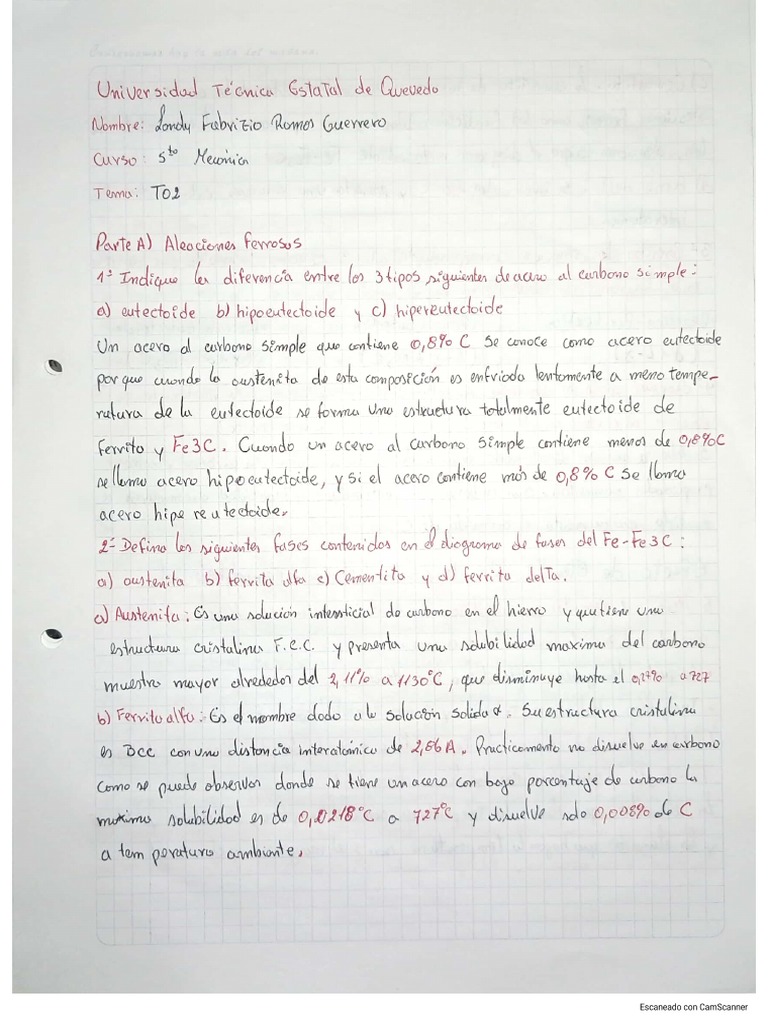 Universidad Técnica Estatal de Quevedo
Nombre: Londy Fabrizio Ramos Guerrero
Curso: 5to Mecánica
Tema: T02
Parte A) Aleaciones Ferrosos
1- Indique la diferencia entre los 3 tipos siguientes de acero al carbono simple:
a) eutectoide b) hipoeutectoide y c) hipereutectoide
Un acero al carbono simple que contiene 0,8% C se conoce como acero eutectoide
porque cuando la austenita de esta composición es enfriada lentamente a meno tempe-
ratura de la eutectoide se forma una estructura totalmente eutectoide de
ferrita y Fe3C. Cuando un acero al carbono simple contiene menos de 0,8%C
se llama acero hipoeutectoide, y si el acero contiene más de 0,8% C se llama
acero hipereutectoide.
2- Defina los siguientes fases contenidos en el diagrama de fases del Fe-Fe3C:
a) austenita b) ferrita alfa c) Cementita y d) ferrita delta.
a) Austenita: Es una solución intersticial de carbono en el hierro y que tiene una
estructura cristalina F.C.C. y presenta una solubilidad maxima del carbono
muestra mayor alrededor del 2,11% a 1130°C, que disminuye hasta el 0,77% a 727
b) Ferrita alfa: Es el nombre dado a la solución solida α. Su estructura cristalina
es BCC con una distancia interatómica de 2,86A. Practicamente no disuelve en carbono
como se puede observar donde se tiene un acero con bajo porcentaje de carbono la
maxima solubilidad es de 0,0218°C a 727°C y disuelve solo 0,008% de C
a temperatura ambiente.
Escaneado con CamScanner